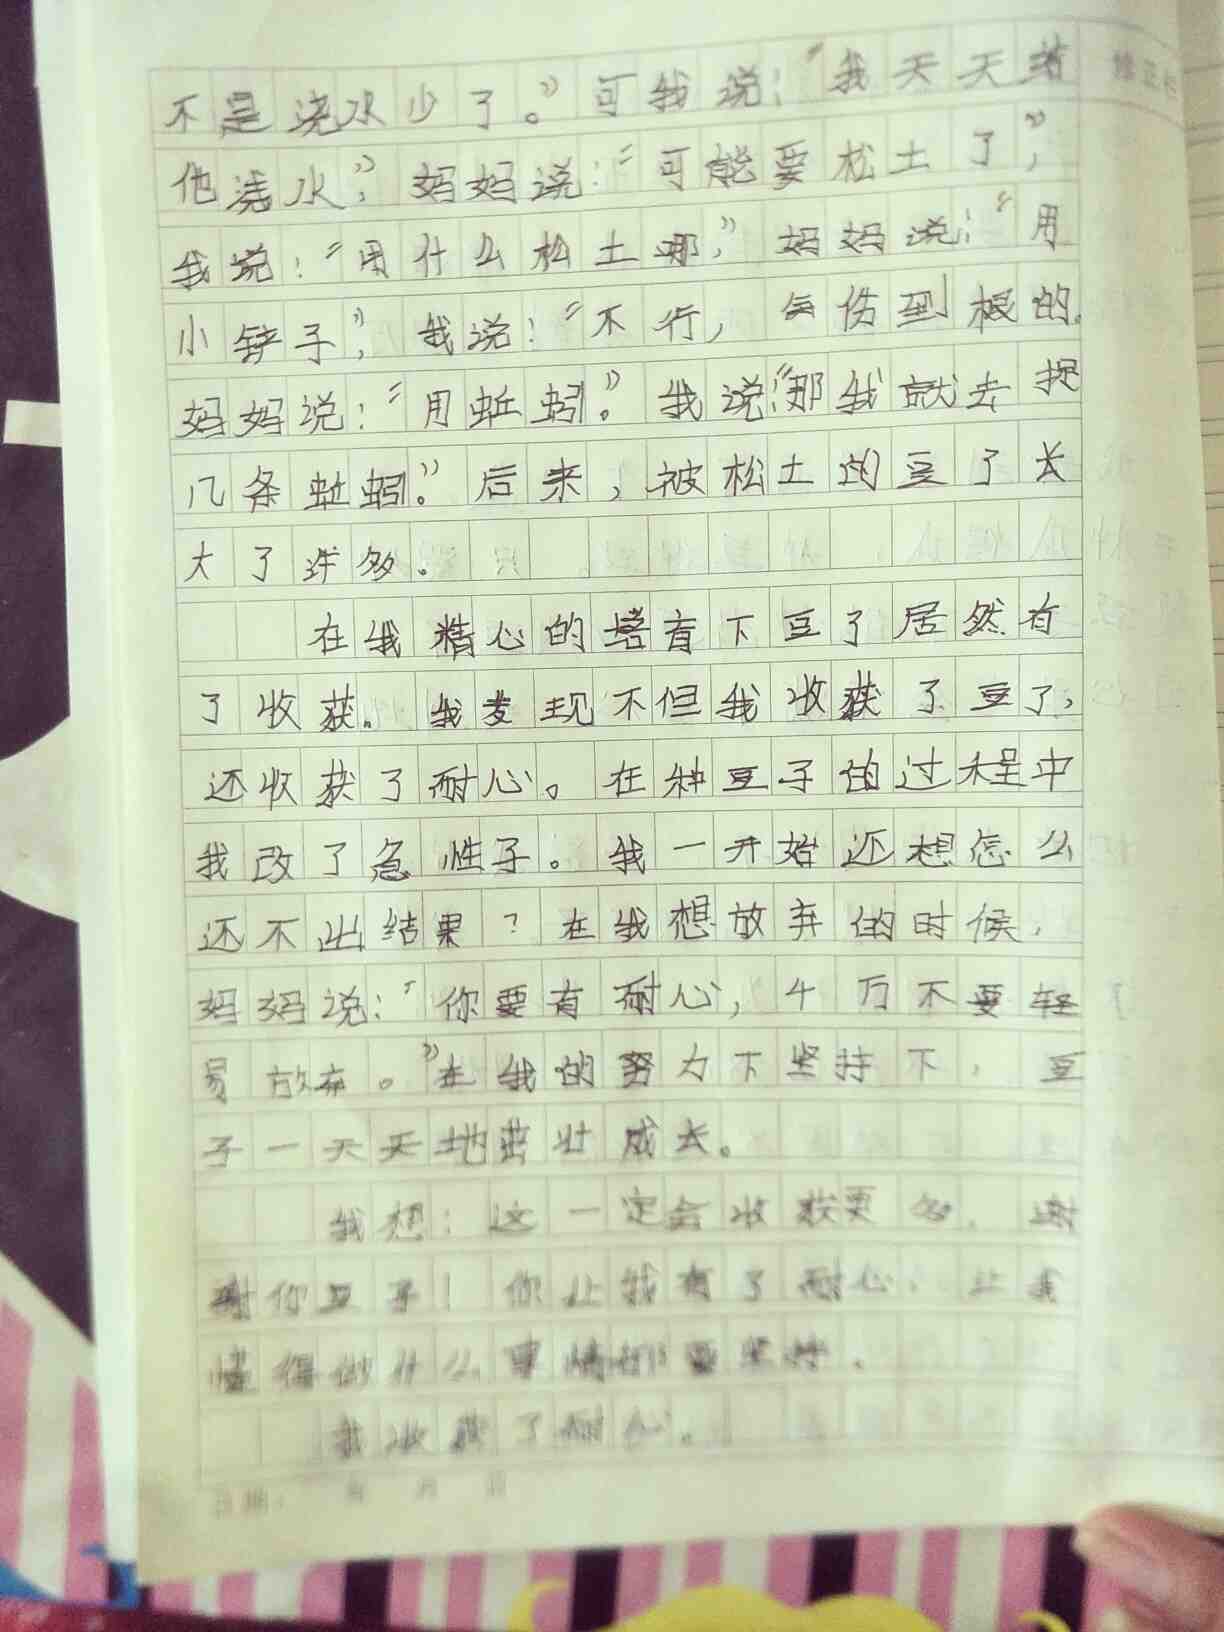 不是浇水少了。”可我说：“我天天给
他浇水，”妈妈说：“可能要松土了，”
我说：“用什么松土哪，”妈妈说：“用
小铲子，”我说：“不行，会伤到根的。
妈妈说：“用蚯蚓。”我说：“那我就去捉
几条蚯蚓。”后来，被松土的豆子长
大了许多。
在我精心的培育下豆子居然有
了收获。我发现不但我收获了豆子，
还收获了耐心。在种豆子的过程中
我改了急性子。我一开始还想怎么
还不出结果？在我想放弃的时候，
妈妈说：“你要有耐心，千万不要轻
易放弃。”在我的努力下坚持下，豆
子一天天地茁壮成长。
我想：这一定会收获更多。谢
谢你豆子！你让我有了耐心，让我
懂得做什么事情都要坚持。
我收获了耐心。
日期： 年 月 日